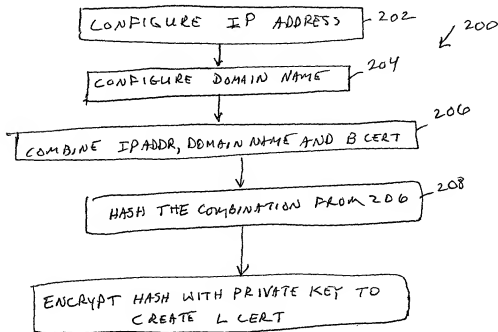 CONFIGURE IP ADDRESS
202
200
CONFIGURE DOMAIN NAME
204
COMBINE IP ADDR, DOMAIN NAME AND B CERT
206
HASH THE COMBINATION FROM 206
208
ENCRYPT HASH WITH PRIVATE KEY TO
CREATE L CERT